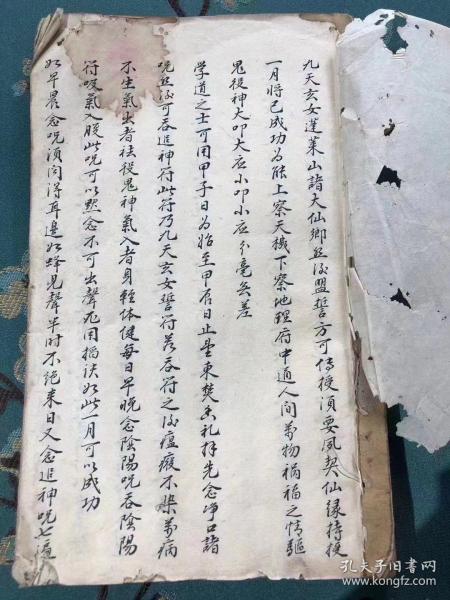 九天玄女蓬莱山諸大仙卿然後盟誓方可傳授須要夙契仙緣持授
一月將已成功為能上察天機下察地理府中通人间萬物禍福之情驅
鬼役神大叩大应小叩小应分毫無差
学道之士可用甲子日為始至甲辰日止望東焚香礼拜先念净口諸
咒然後可吞追神符此符乃九天玄女誓符若吞符之後瘟疫不染萬病
不生氣出者祛役鬼神氣入者身輕体健每日早晚念陰陽咒吞陰陽
符吸氣入腹此咒可以默念不可出聲兎用搯訣如此一月可以成功
如早晨念咒須向得耳邊如蜂児聲半时不絶来日又念追神咒七遍
孔夫子旧书网
www.kongfz.com